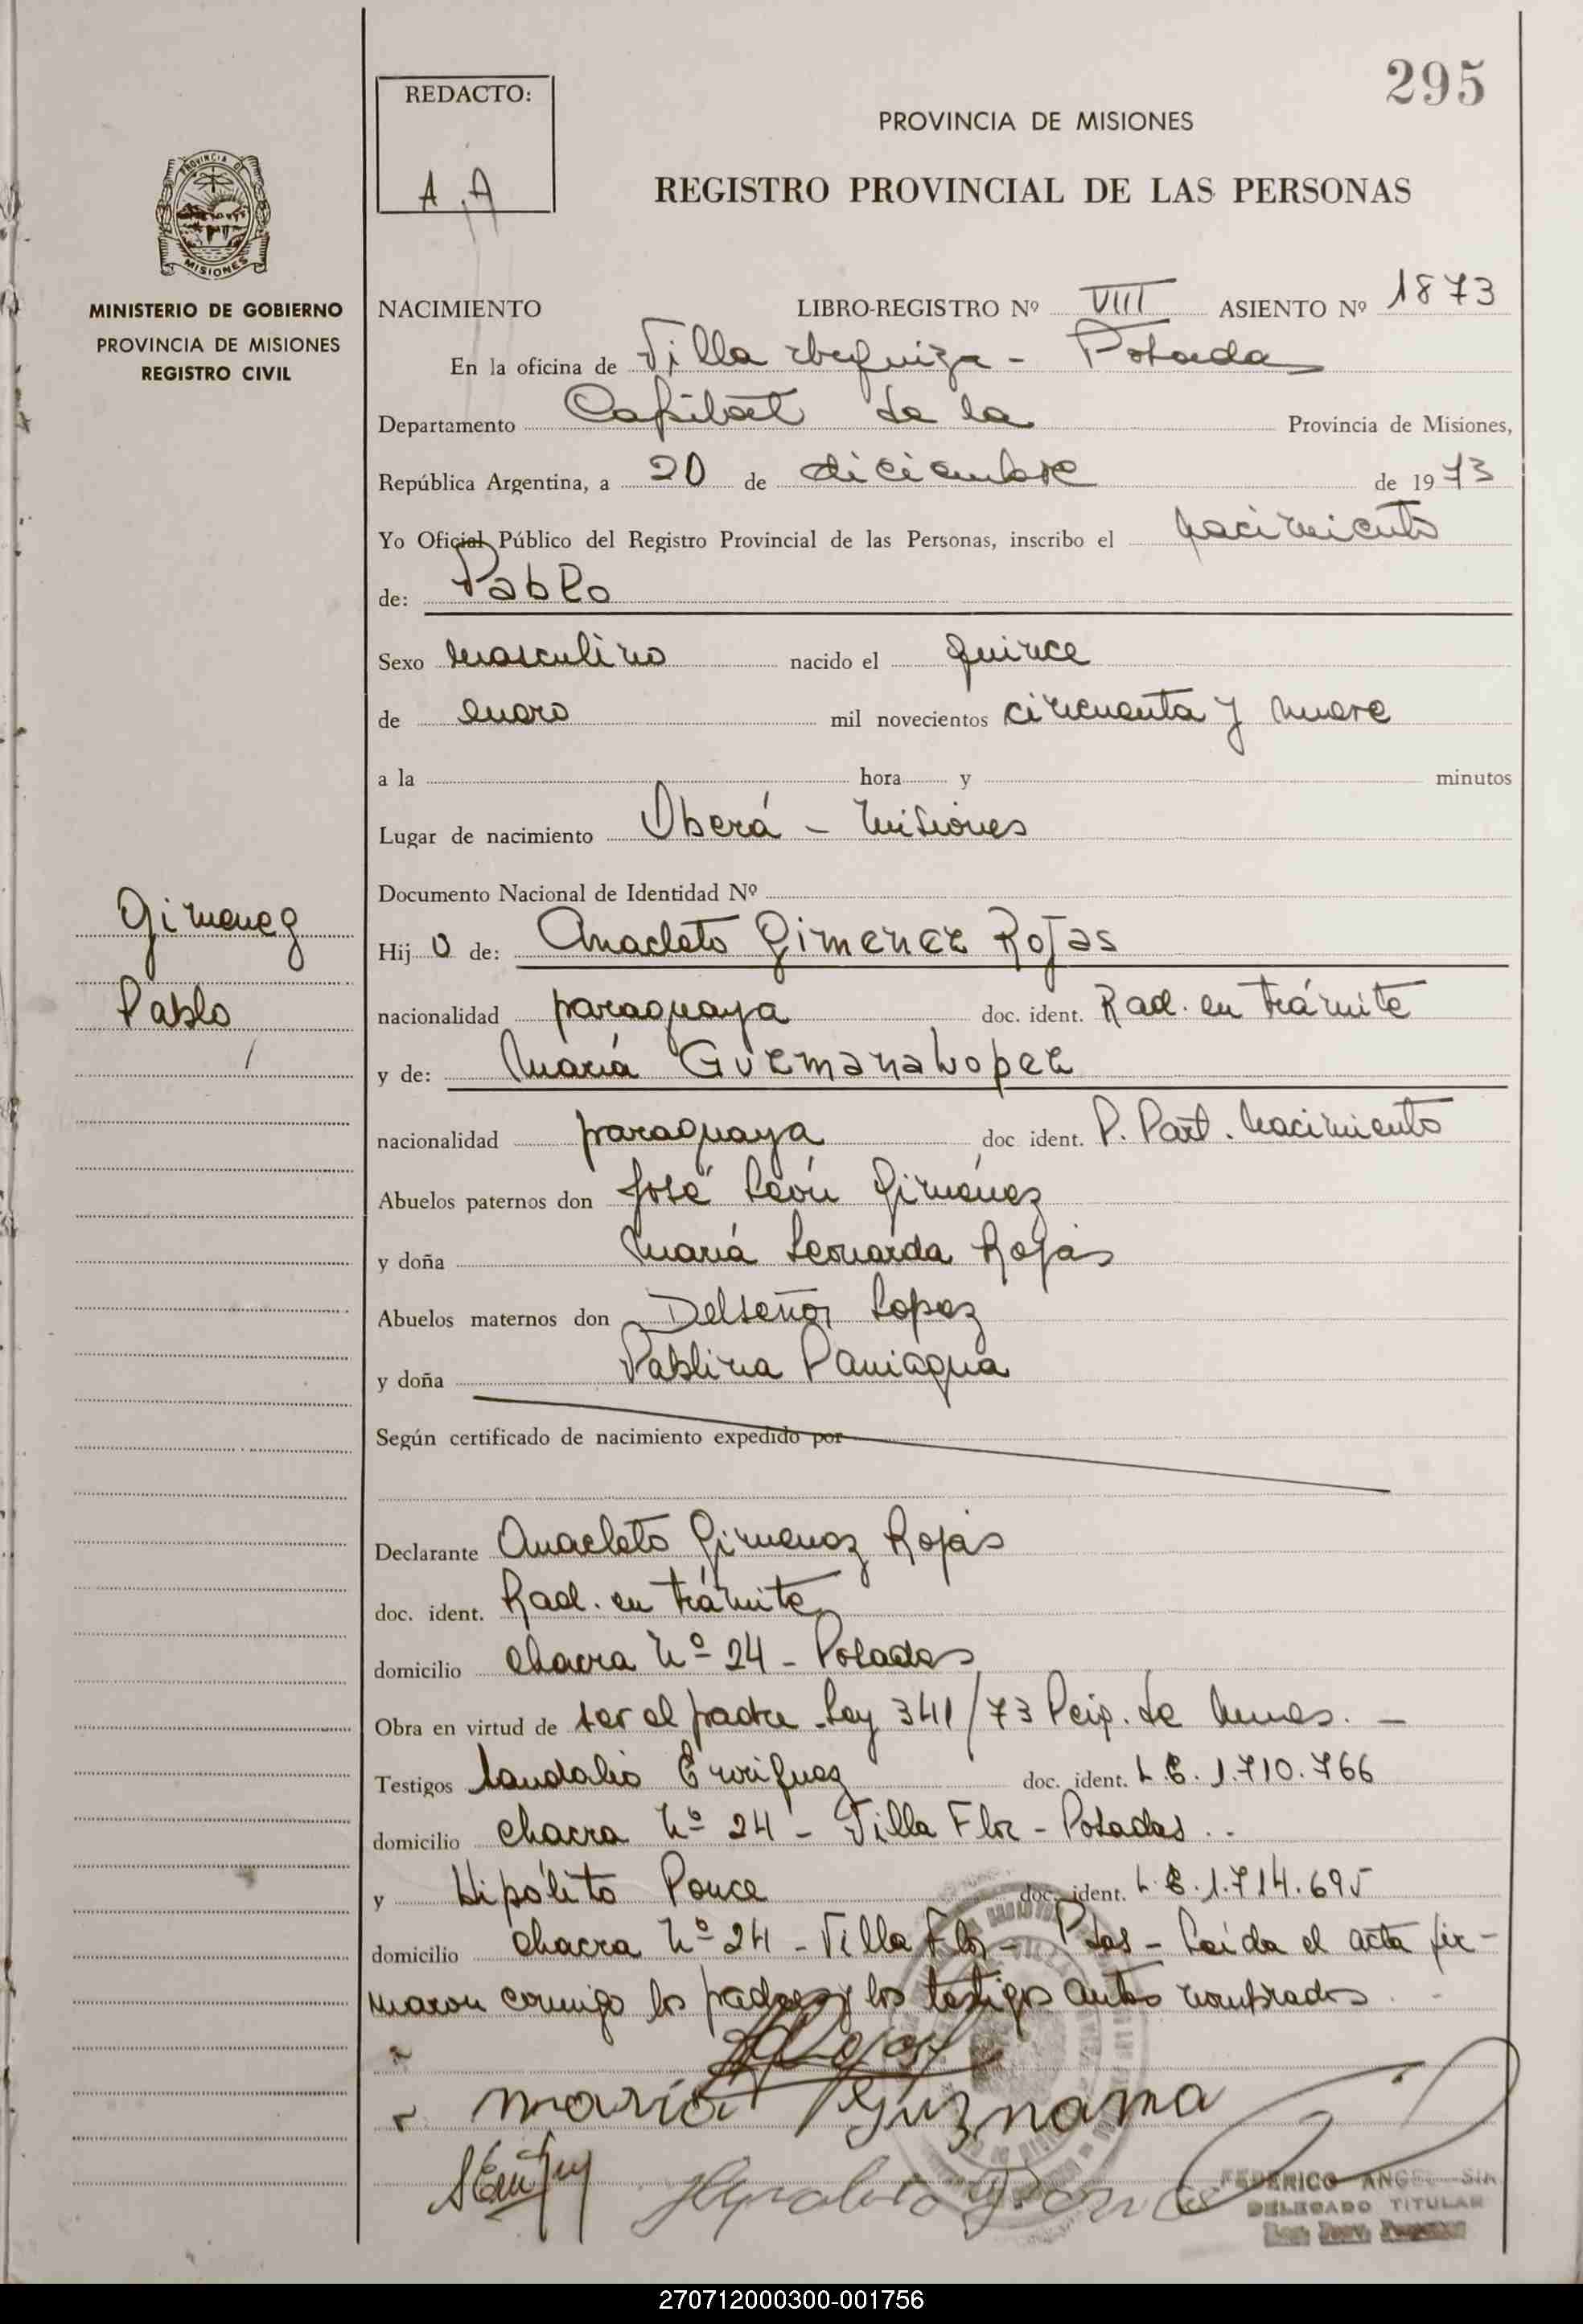 295
REDACTO:
A.A
PROVINCIA DE MISIONES
REGISTRO PROVINCIAL DE LAS PERSONAS
PROVINCIA DE
MISIONES
MINISTERIO DE GOBIERNO
PROVINCIA DE MISIONES
REGISTRO CIVIL
NACIMIENTO LIBRO-REGISTRO Nº VIII ASIENTO Nº 1873
En la oficina de Villa Urquiza - Posadas
Departamento Capital de la Provincia de Misiones,
República Argentina, a 20 de diciembre de 1973
Yo Oficial Público del Registro Provincial de las Personas, inscribo el nacimiento
de: Pablo
Sexo masculino nacido el quince
de enero mil novecientos cincuenta y nueve
a la hora y minutos
Lugar de nacimiento Oberá - Misiones
Documento Nacional de Identidad Nº
Gimenez
Pablo
Hij o de: Anacleto Gimenez Rojas
nacionalidad paraguaya doc. ident. Rad. en trámite
y de: María Guzmana Lopez
nacionalidad paraguaya doc ident. P. Part. Nacimiento
Abuelos paternos don José León Giménez
y doña María Leonarda Rojas
Abuelos maternos don Delseñor Lopez
y doña Pablina Paniagua
Según certificado de nacimiento expedido por
Declarante Anacleto Gimenez Rojas
doc. ident. Rad. en trámite
domicilio chacra Nº 24 - Posadas
Obra en virtud de ser el padre Ley 341/73 de
Testigos Landalio Enriquez doc. ident. L.E. 1.710.766
domicilio chacra Nº 24 - Villa Flor - Posadas
y Hipólito Ponce doc. ident. L.E. 1.714.695
domicilio chacra Nº 24 - Villa Flor - Pdas - Leída el acta fir-
maron conmigo los padres y los testigos antes nombrados.
maria guzmana
Hipolito Ponce
FEDERICO ANGEL
DELEGADO TITULAR
270712000300-001756